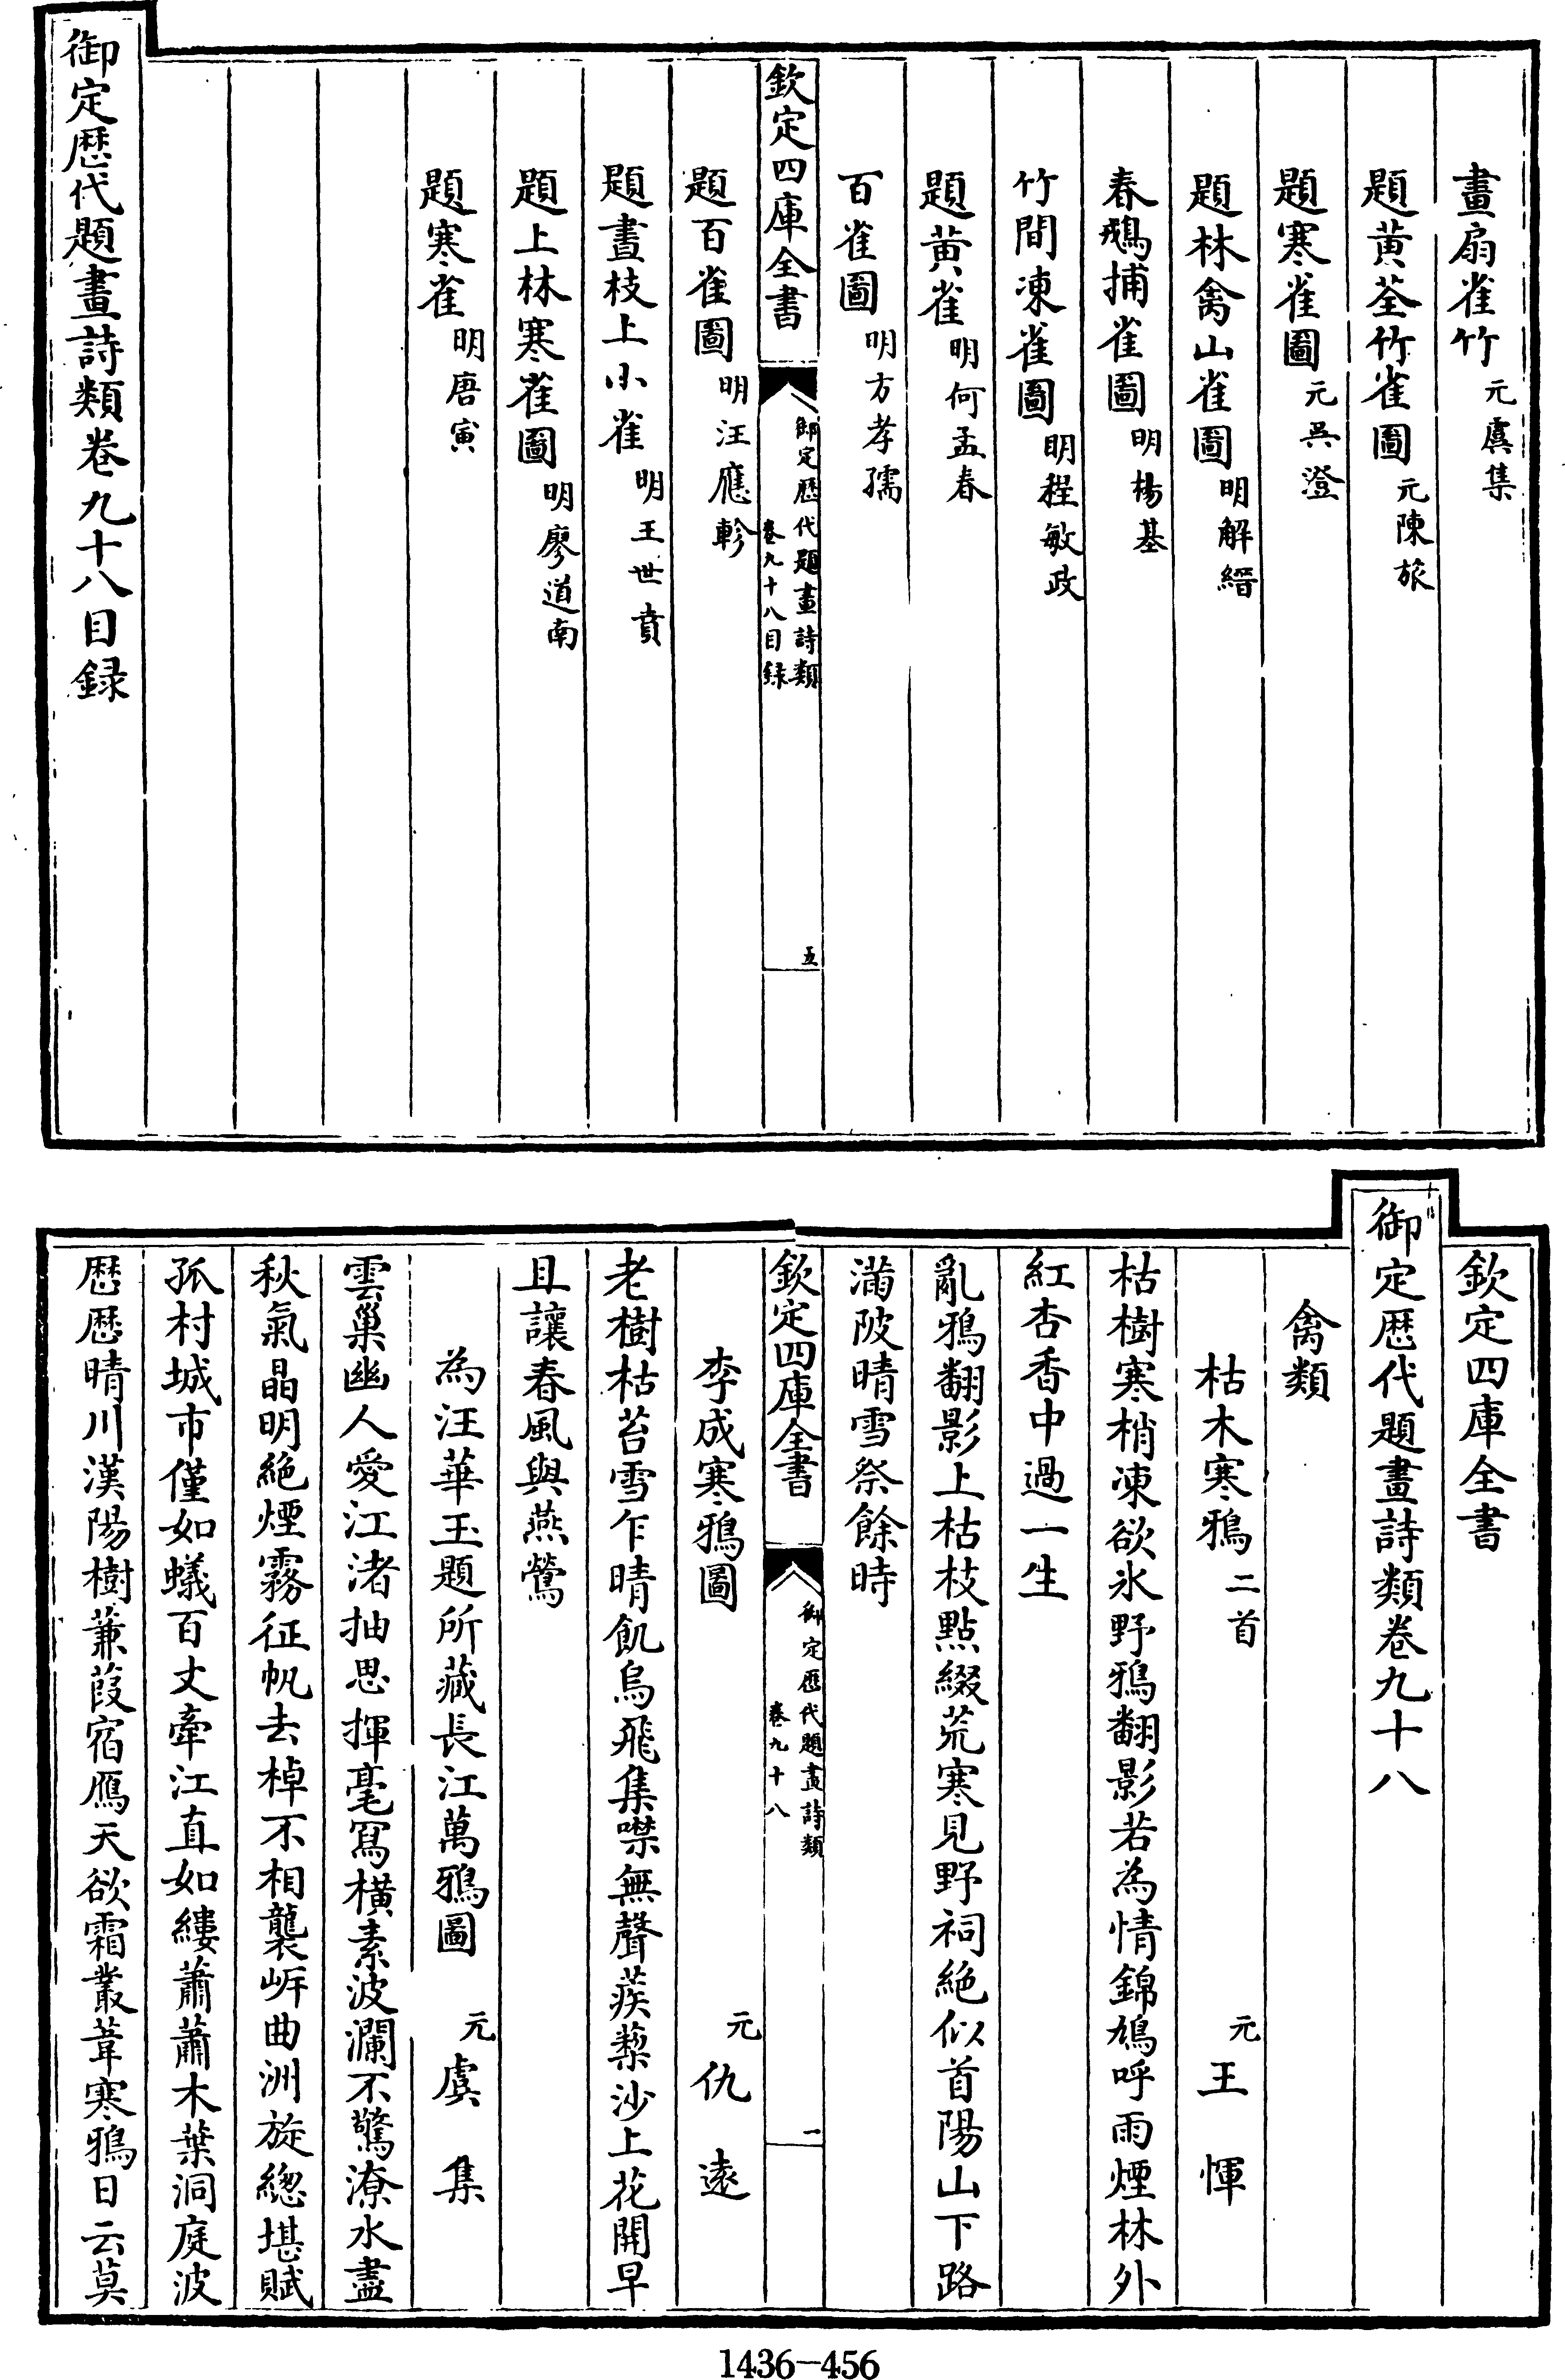 畫扇雀竹 元虞集
題黄荃竹雀圖 元陳旅
題寒雀圖 元吳澄
題林禽山雀圖 明解縉
春鵝捕雀圖 明楊基
竹間凍雀圖 明程敏政
題黄雀 明何孟春
百雀圖 明方孝孺
欽定四庫全書
御定歴代題畫詩類
卷九十八目録
五
題百雀圖 明汪應軫
題畫枝上小雀 明王世貞
題上林寒雀圖 明廖道南
題寒雀 明唐寅
御定歴代題畫詩類卷九十八目録
欽定四庫全書
御定歴代題畫詩類卷九十八
禽類
枯木寒鴉 二首 元王惲
枯樹寒梢凍欲氷野鴉翻影若為情錦鳩呼雨煙林外
紅杏香中過一生
亂鴉翻影上枯枝點綴荒寒見野祠絶似首陽山下路
滿陂晴雪祭餘時
欽定四庫全書
御定歴代題畫詩類
卷九十八
一
李成寒鴉圖 元仇遠
老樹枯苔雪乍晴飢烏飛集噤無聲蒺蔾沙上花開早
且讓春風與燕鶯
為汪華玉題所藏長江萬鴉圖 元虞集
雲巢幽人愛江渚抽思揮毫冩橫素波瀾不驚潦水盡
秋氣晶明絶煙霧征帆去棹不相襲㟁曲洲旋總堪賦
孤村城市僅如蟻百丈牽江直如縷蕭蕭木葉洞庭波
歴歴晴川漢陽樹蒹葭宿鴈天欲霜叢葦寒鴉日云莫
1436-456